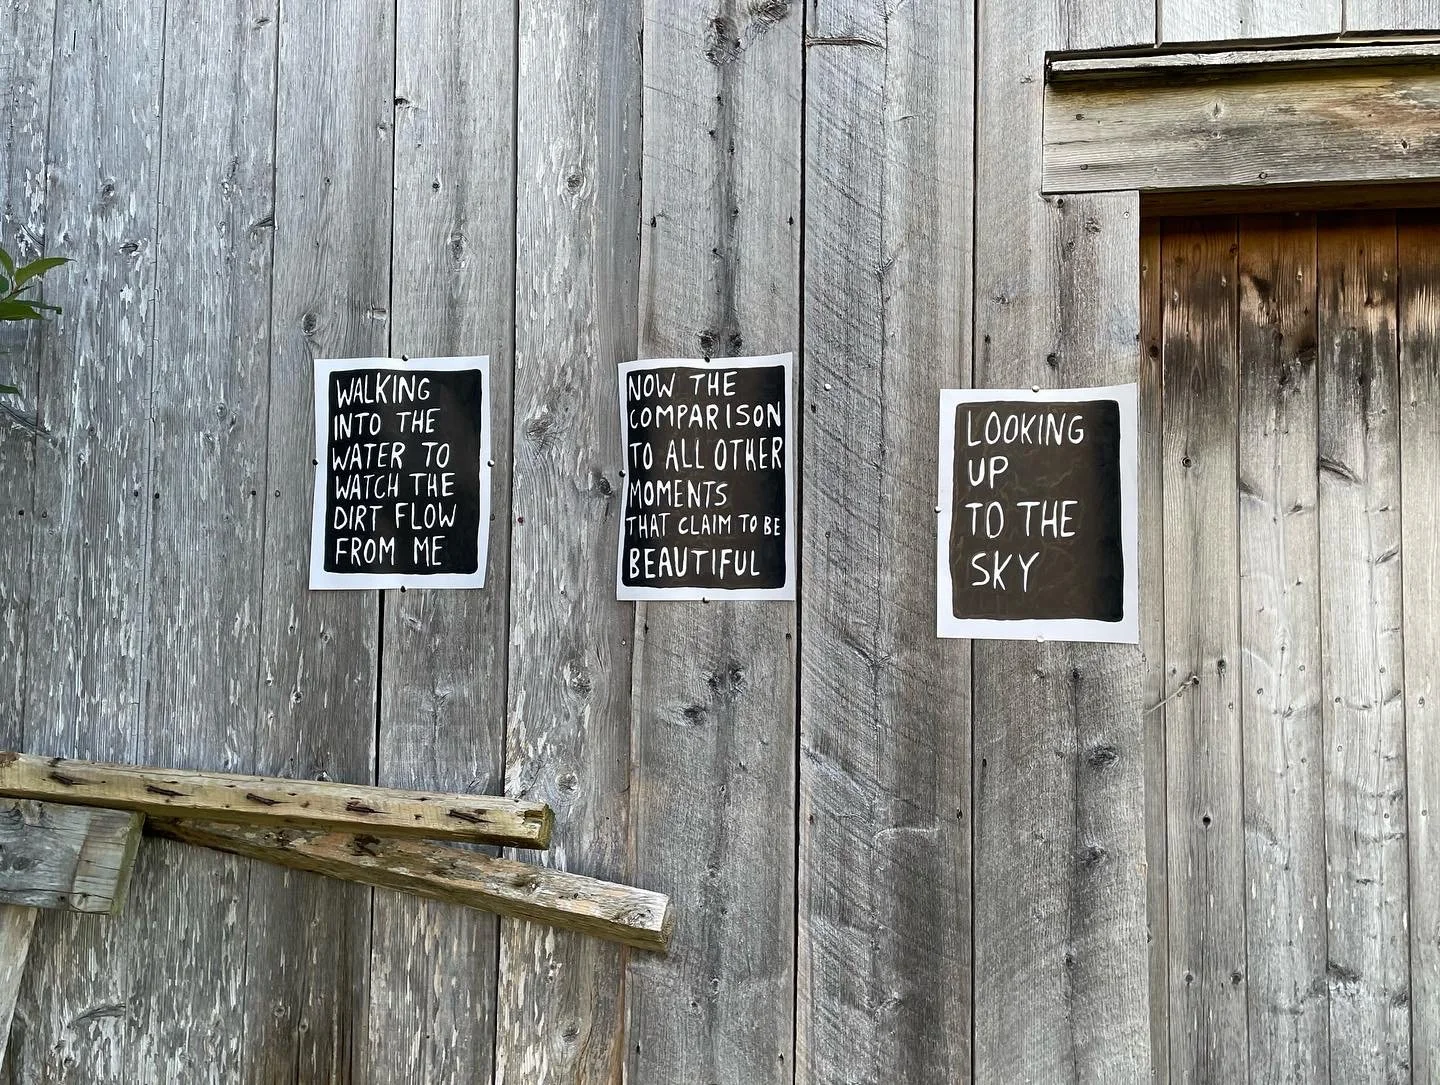 WALKING
INTO THE
WATER TO
WATCH THE
DIRT FLOW
FROM ME
NOW THE
COMPARISON
TO ALL OTHER
MOMENTS
THAT CLAIM TO BE
BEAUTIFUL
LOOKING
UP
TO THE
SKY